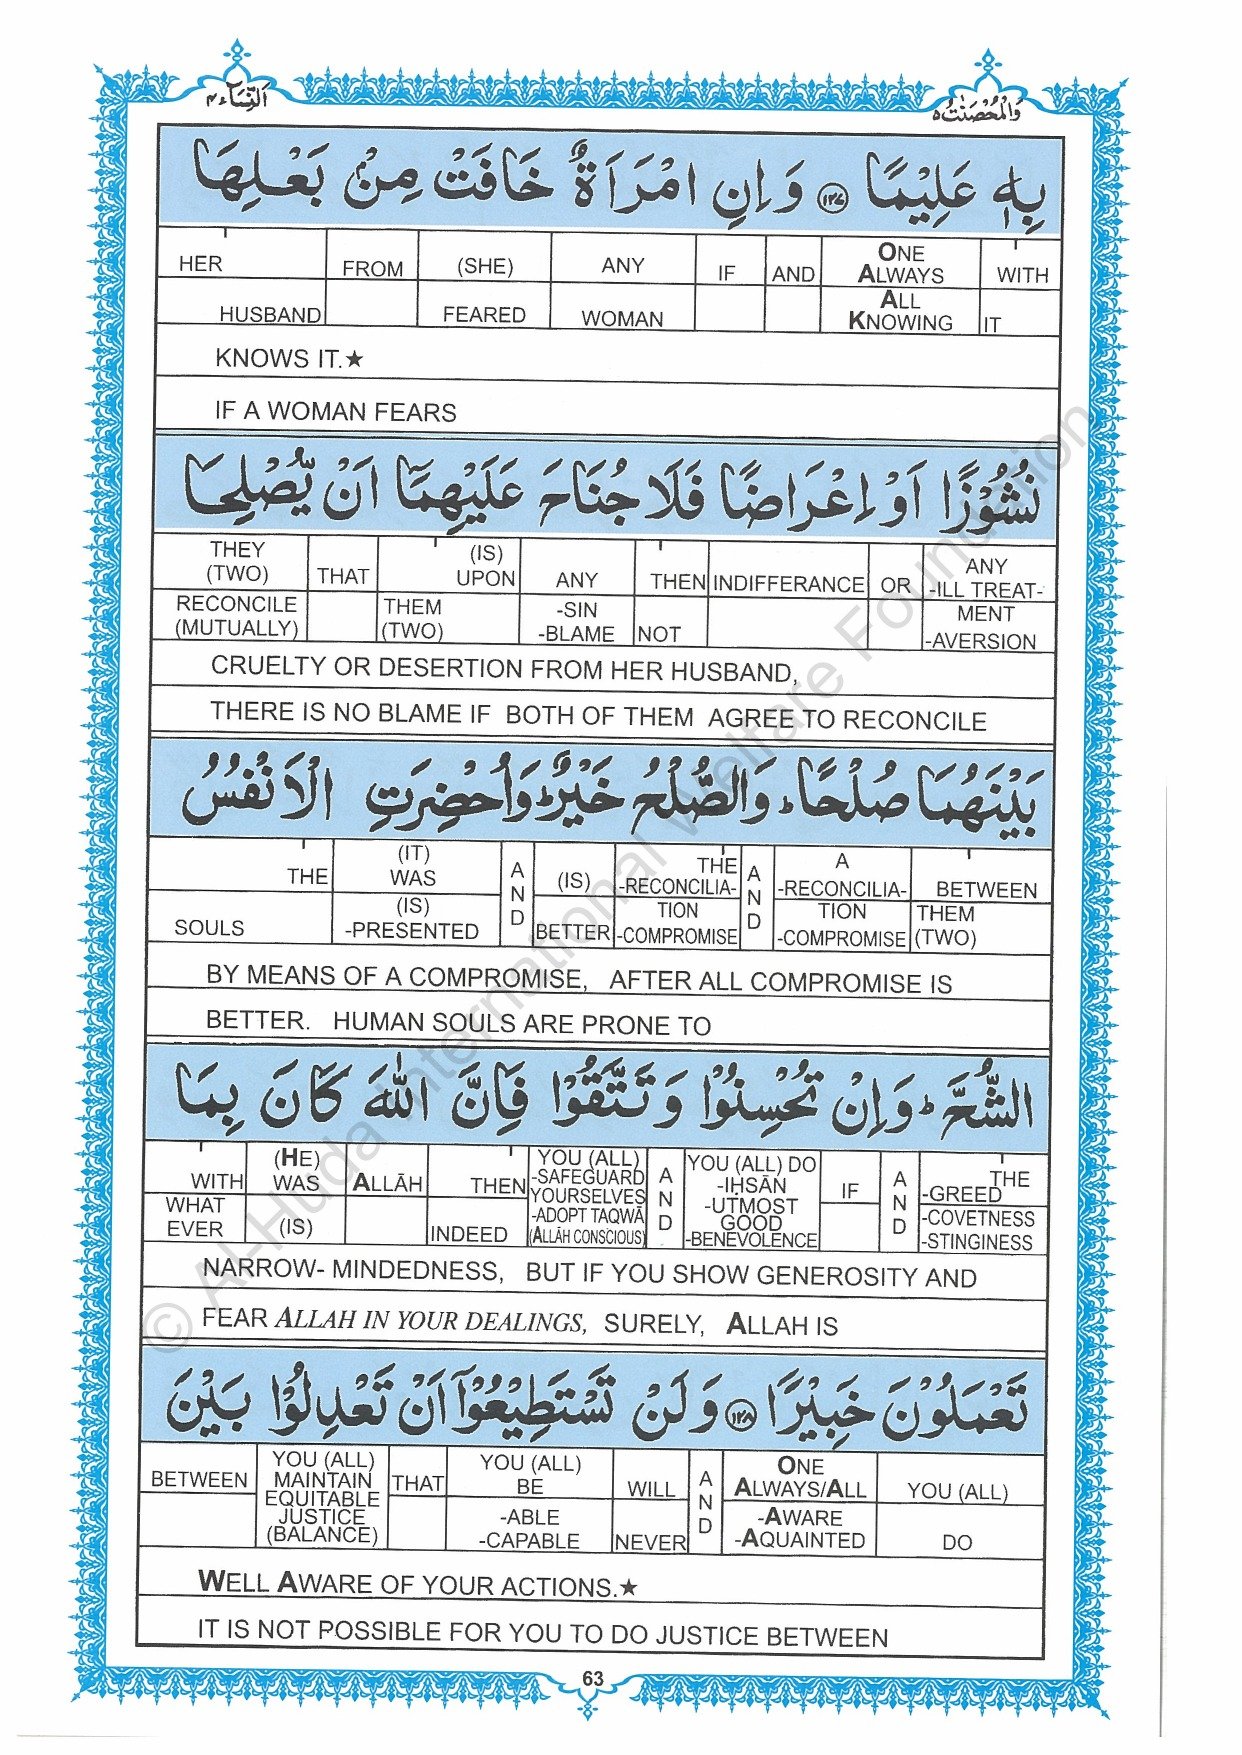 اَلنِّسَآء ٤
وَالْمُحْصَنٰتُ ٥
بِهٖ عَلِيْمًا ١٢٧ وَاِنِ امْرَاَةٌ خَافَتْ مِنْۢ بَعْلِهَا
HER FROM (SHE) ANY IF AND ONE ALWAYS WITH
HUSBAND FEARED WOMAN ALL KNOWING IT
KNOWS IT.★
IF A WOMAN FEARS
نُشُوْزًا اَوْ اِعْرَاضًا فَلَا جُنَاحَ عَلَيْهِمَآ اَنْ يُّصْلِحَا
THEY (TWO) THAT (IS) UPON ANY THEN INDIFFERANCE OR ANY -ILL TREAT-
RECONCILE (MUTUALLY) THEM (TWO) -SIN -BLAME NOT MENT -AVERSION
CRUELTY OR DESERTION FROM HER HUSBAND,
THERE IS NO BLAME IF BOTH OF THEM AGREE TO RECONCILE
بَيْنَهُمَا صُلْحًا ؕ وَالصُّلْحُ خَيْرٌ ؕ وَاُحْضِرَتِ الْاَنْفُسُ
THE (IT) WAS AND (IS) THE -RECONCILIA- AND A -RECONCILIA- BETWEEN
SOULS (IS) -PRESENTED BETTER TION -COMPROMISE TION -COMPROMISE THEM (TWO)
BY MEANS OF A COMPROMISE, AFTER ALL COMPROMISE IS
BETTER. HUMAN SOULS ARE PRONE TO
الشُّحَّ ؕ وَاِنْ تُحْسِنُوْا وَتَتَّقُوْا فَاِنَّ اللّٰهَ كَانَ بِمَا
WITH (HE) WAS ALLĀH THEN YOU (ALL) -SAFEGUARD YOURSELVES AND YOU (ALL) DO -IḤSĀN -UTMOST IF AND THE -GREED
WHAT EVER (IS) INDEED -ADOPT TAQWĀ (ALLĀH CONSCIOUS) GOOD -BENEVOLENCE -COVETNESS -STINGINESS
NARROW- MINDEDNESS, BUT IF YOU SHOW GENEROSITY AND
FEAR ALLAH IN YOUR DEALINGS, SURELY, ALLAH IS
تَعْمَلُوْنَ خَبِيْرًا ١٢٨ وَلَنْ تَسْتَطِيْعُوْٓا اَنْ تَعْدِلُوْا بَيْنَ
BETWEEN YOU (ALL) MAINTAIN EQUITABLE THAT YOU (ALL) BE WILL AND ONE ALWAYS/ALL YOU (ALL)
JUSTICE (BALANCE) -ABLE -CAPABLE NEVER -AWARE -AQUAINTED DO
WELL AWARE OF YOUR ACTIONS.★
IT IS NOT POSSIBLE FOR YOU TO DO JUSTICE BETWEEN
63
© Al-Huda International Welfare Foundation